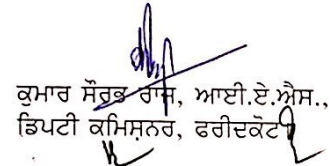 ਕੁਮਾਰ ਸੌਰਭ ਰਾਜ, ਆਈ.ਏ.ਐਸ.,
ਡਿਪਟੀ ਕਮਿਸ਼ਨਰ, ਫਰੀਦਕੋਟ